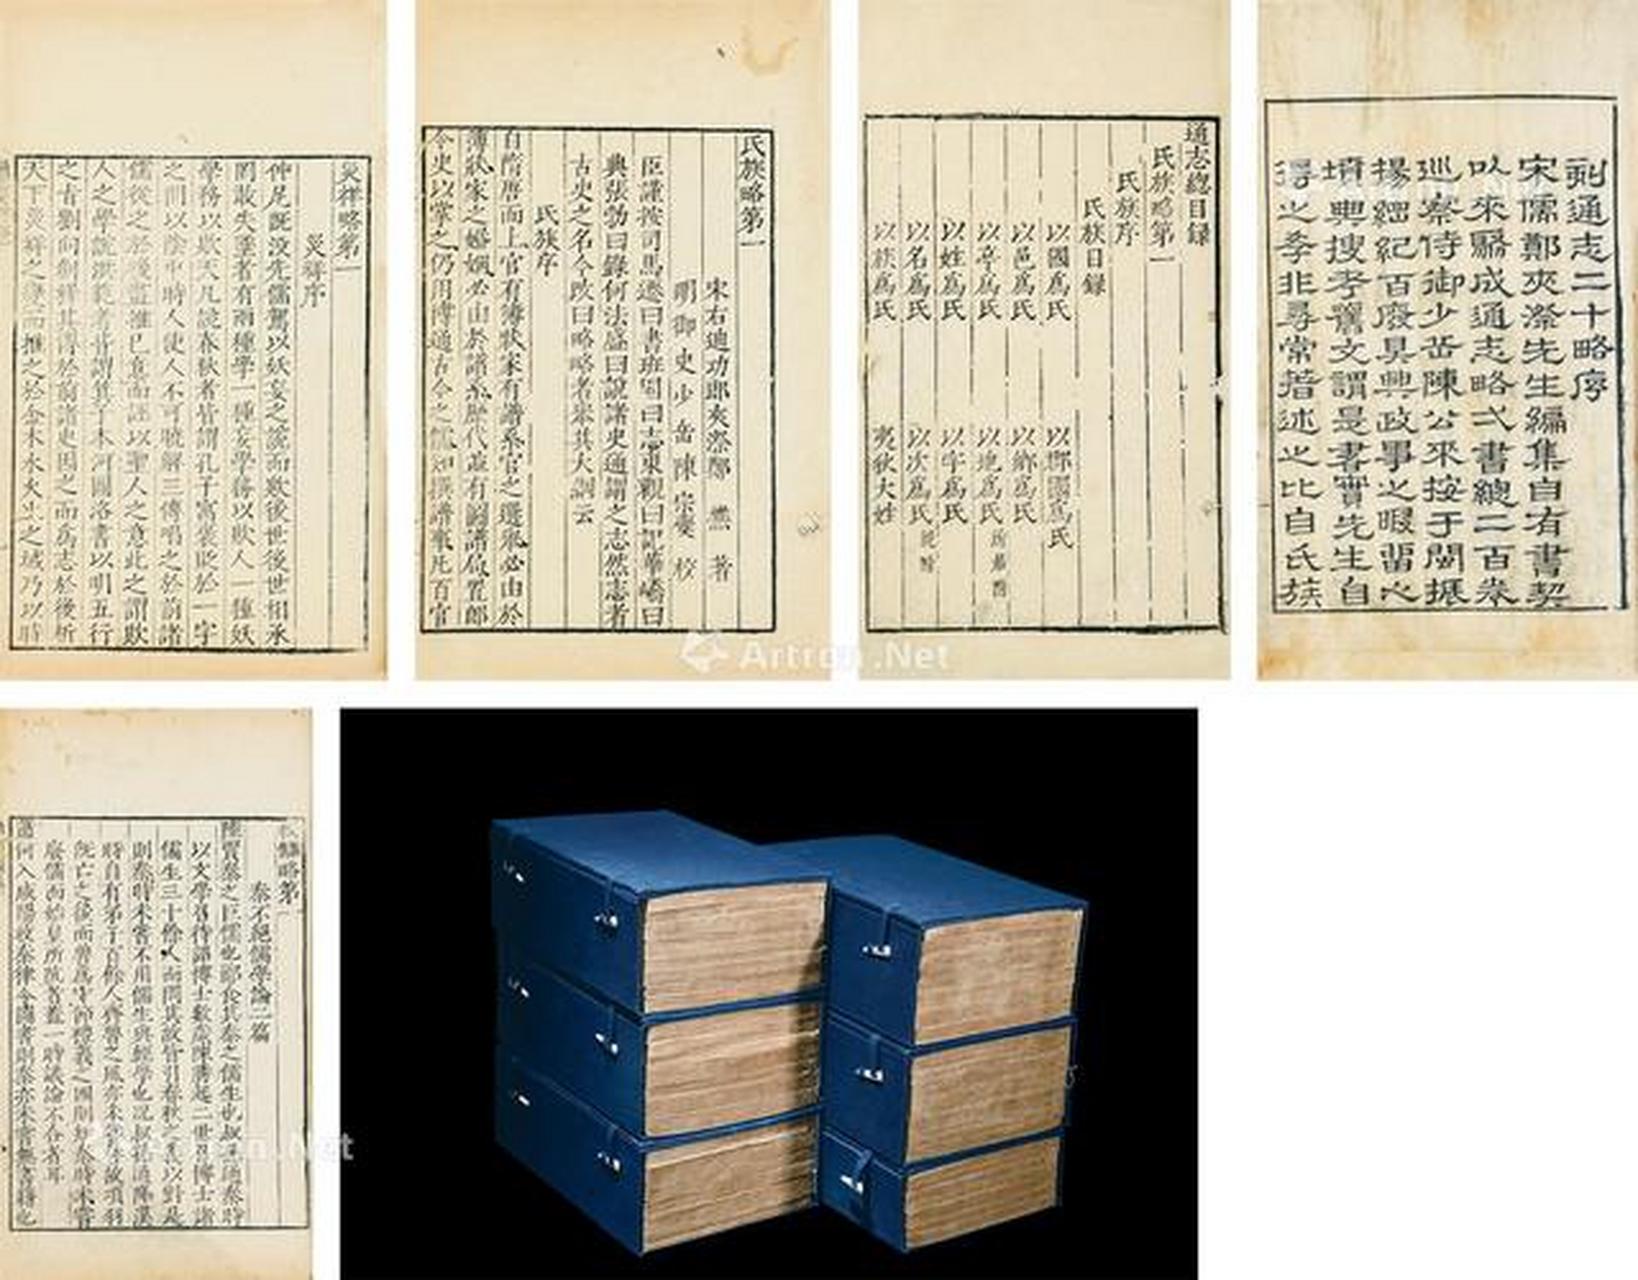 刻通志二十略序
宋儒鄭夾漈先生編集自有書契
以來䌖成通志略弌書總二百卷
巡察侍御少岳陳公來按于閩振
揚紀百廢具興政事之暇畱心
墳典搜考舊文謂是書實先生自
得之季非尋常著述之比自氏族
通志總目録
氏族略第一
氏族序
氏族目録
以國爲氏
以郡國爲氏
以邑爲氏
以鄉爲氏
以亭爲氏
以地爲氏
以姓爲氏
以字爲氏
以名爲氏
以次爲氏
以族爲氏
夷狄大姓
氏族略第一
宋右迪功郎夾漈鄭樵著
明御史少岳陳宗夔校
臣謹按司馬遷曰書班固曰志東觀曰記華嶠曰
典張勃曰錄何法盛曰說諸史通謂之志然志者
古史之名今改曰略略者舉其大綱云
氏族序
自隋唐而上官有簿狀家有譜系官之選舉必由於
簿狀家之婚姻必由於譜系歷代並有圖譜局置郎
令史以掌之仍用博通古今之儒知撰譜事凡百官
災祥略第一
災祥序
仲尼既没先儒駕以妖妄之說而欺後世後世相承
罔敢失墜者有兩種學一種妄學務以欺人一種妖
學務以欺天凡說春秋者皆謂孔子寓褒貶於一字
之間以陰中時人使人不可曉解三傳唱之於前諸
儒從之於後盡推己意而誣以聖人之意此之謂欺
人之學說洪範者皆謂箕子本河圖洛書以明五行
之旨劉向創釋其傳於前諸史因之而爲志於後析
天下災祥之變而推之於金木水火土之域乃以時
校讎略第一
秦不絕儒學論二篇
陸賈秦之巨儒也酈食其秦之儒生也叔孫通秦時
以文學召待詔博士數歲陳勝起二世召博士諸
儒生三十餘人而問其故皆引春秋之義以對是
則秦時未嘗不用儒生與經學也況叔孫通降漢
時自有弟子百餘人齊魯之風亦未嘗替故項羽
既亡之後而魯爲守節禮義之國則知秦時未嘗
廢儒而始皇所阬者蓋一時議論不合者耳
蕭何入咸陽收秦律令圖書則秦亦未嘗無書籍也
Artron.Net